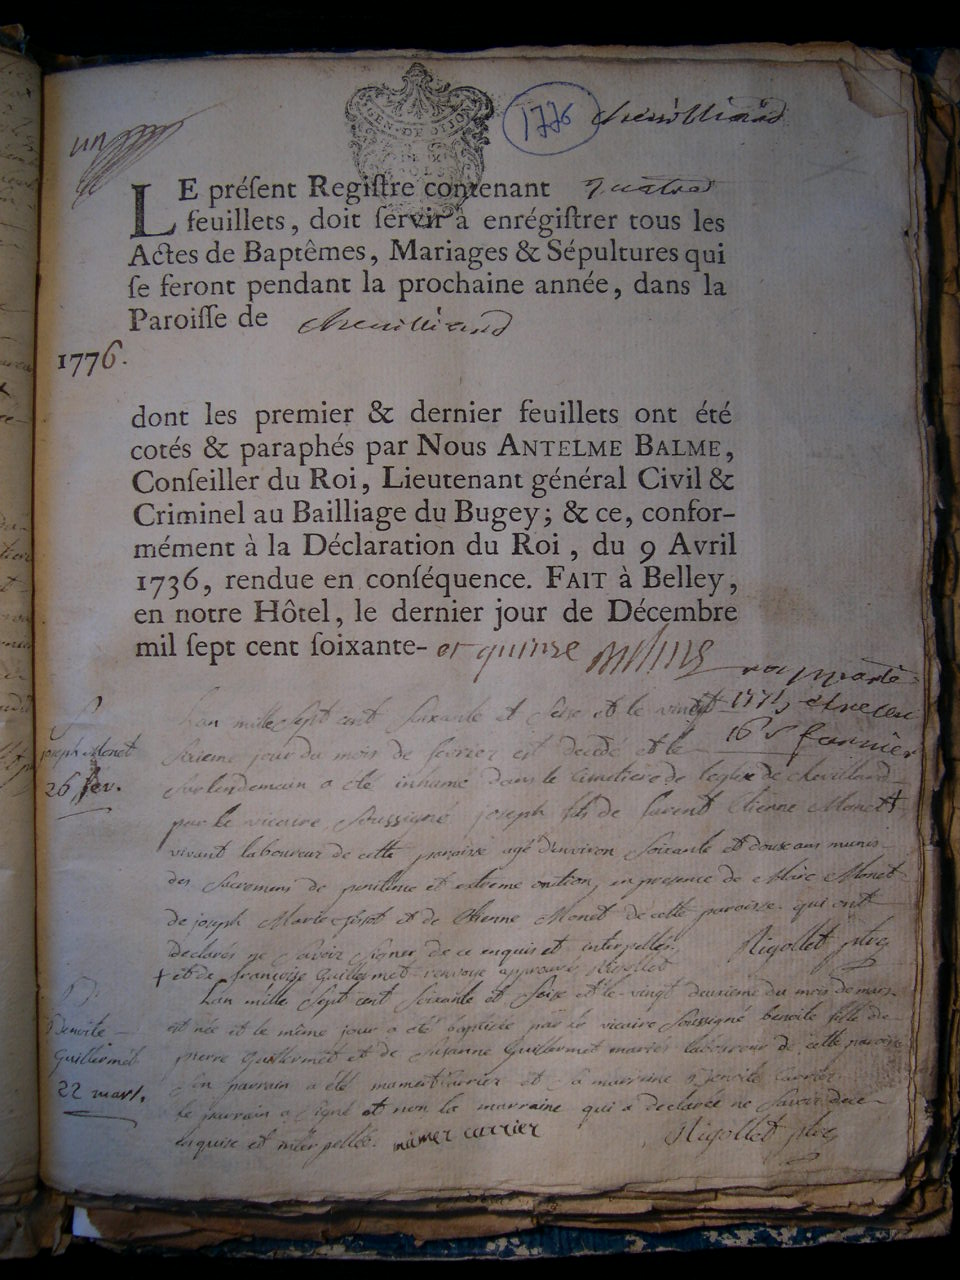 un
GEN. DE DIJON
1776
chevilliard
LE préſent Regiſtre contenant quatre
feuillets, doit ſervir à enrégiſtrer tous les
Actes de Baptêmes, Mariages & Sépultures qui
ſe feront pendant la prochaine année, dans la
Paroiſſe de chevilliard
1776.
dont les premier & dernier feuillets ont été
cotés & paraphés par Nous ANTELME BALME,
Conſeiller du Roi, Lieutenant général Civil &
Criminel au Bailliage du Bugey; & ce, confor-
mément à la Déclaration du Roi, du 9 Avril
1736, rendue en conſéquence. FAIT à Belley,
en notre Hôtel, le dernier jour de Décembre
mil ſept cent ſoixante- et quinse
S
joseph Monet
26 fev.
Lan mille sept cent soixante et seise et le vingt
sixieme jour du mois de fevrier est decedé et le
surlendemain a eté inhumé dans le cimetiere de leglise de chevillard
par le vicaire soussigné joseph fils de Etienne Monet +
vivant laboureur de cette paroisse agé d'environ soixante et douse ans munis
des sacremens de penitence et extreme onction, en presence de Monet
de joseph Marie et de Etienne Monet de cette paroisse qui ont
declarés ne savoir signer de ce enquis et interpellés. Rigollet ptre
+ et de françoise Guillermet renvoye approuvé Rigollet
Benoite
Guillermet
22 mars.
Lan mille sept cent soixante et seise et le vingt deuxieme du mois de mars
est née et le même jour a eté baptisée par le vicaire soussigné benoite fille de
pierre Guillermet et de Susanne Guillermet mariés laboureur de cette paroisse
son parrain a eté mamert Carrier et sa marraine Benoite Carrier
le parrain a signé et non la marraine qui a declarée ne savoir de ce
enquise et interpellée. mamer carrier Rigollet ptre